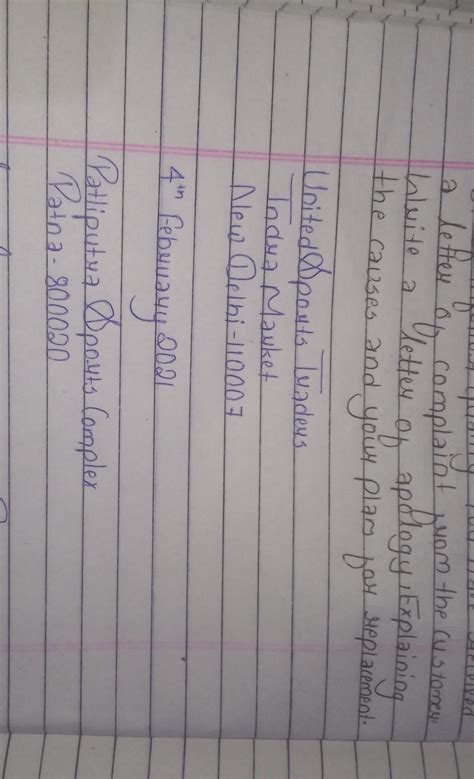 a letter of complaint from the customer.
Write a letter of apology, Explaining
the causes and your plan for replacement.
United Sports Traders
Indra Market
New Delhi-110007
4th February 2021
Patliputra Sports Complex
Patna - 800020